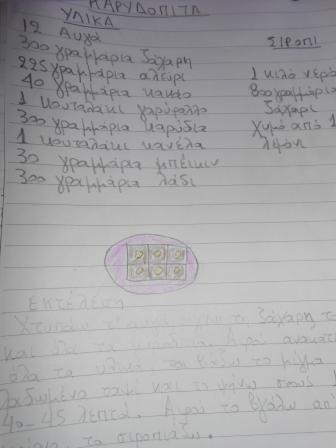 ΚΑΡΥΔΟΠΙΤΑ
ΥΛΙΚΑ
12 Αυγά
300 γραμμάρια ζάχαρη
225 γραμμάρια αλεύρι
40 γραμμάρια κακάο
1 κουταλάκι γαρύφαλλο
300 γραμμάρια καρύδια
1 κουταλάκι κανέλα
30 γραμμάρια μπέικιν
300 γραμμάρια λάδι
ΣΙΡΟΠΙ
1 κιλό νερό
800 γραμμάρια
ζάχαρι
χυμό από 1
λεμόνι
Εκτέλεση
Χτυπάω τη ζάχαρη
και όλα τα Αφού
όλα τα υλικά τα βάζω το μίγμα
λαδωμένο ταψί και το ψήνω στους
40-45 λεπτά. Αφού το βγάλω απ
το σιροπιάζω.